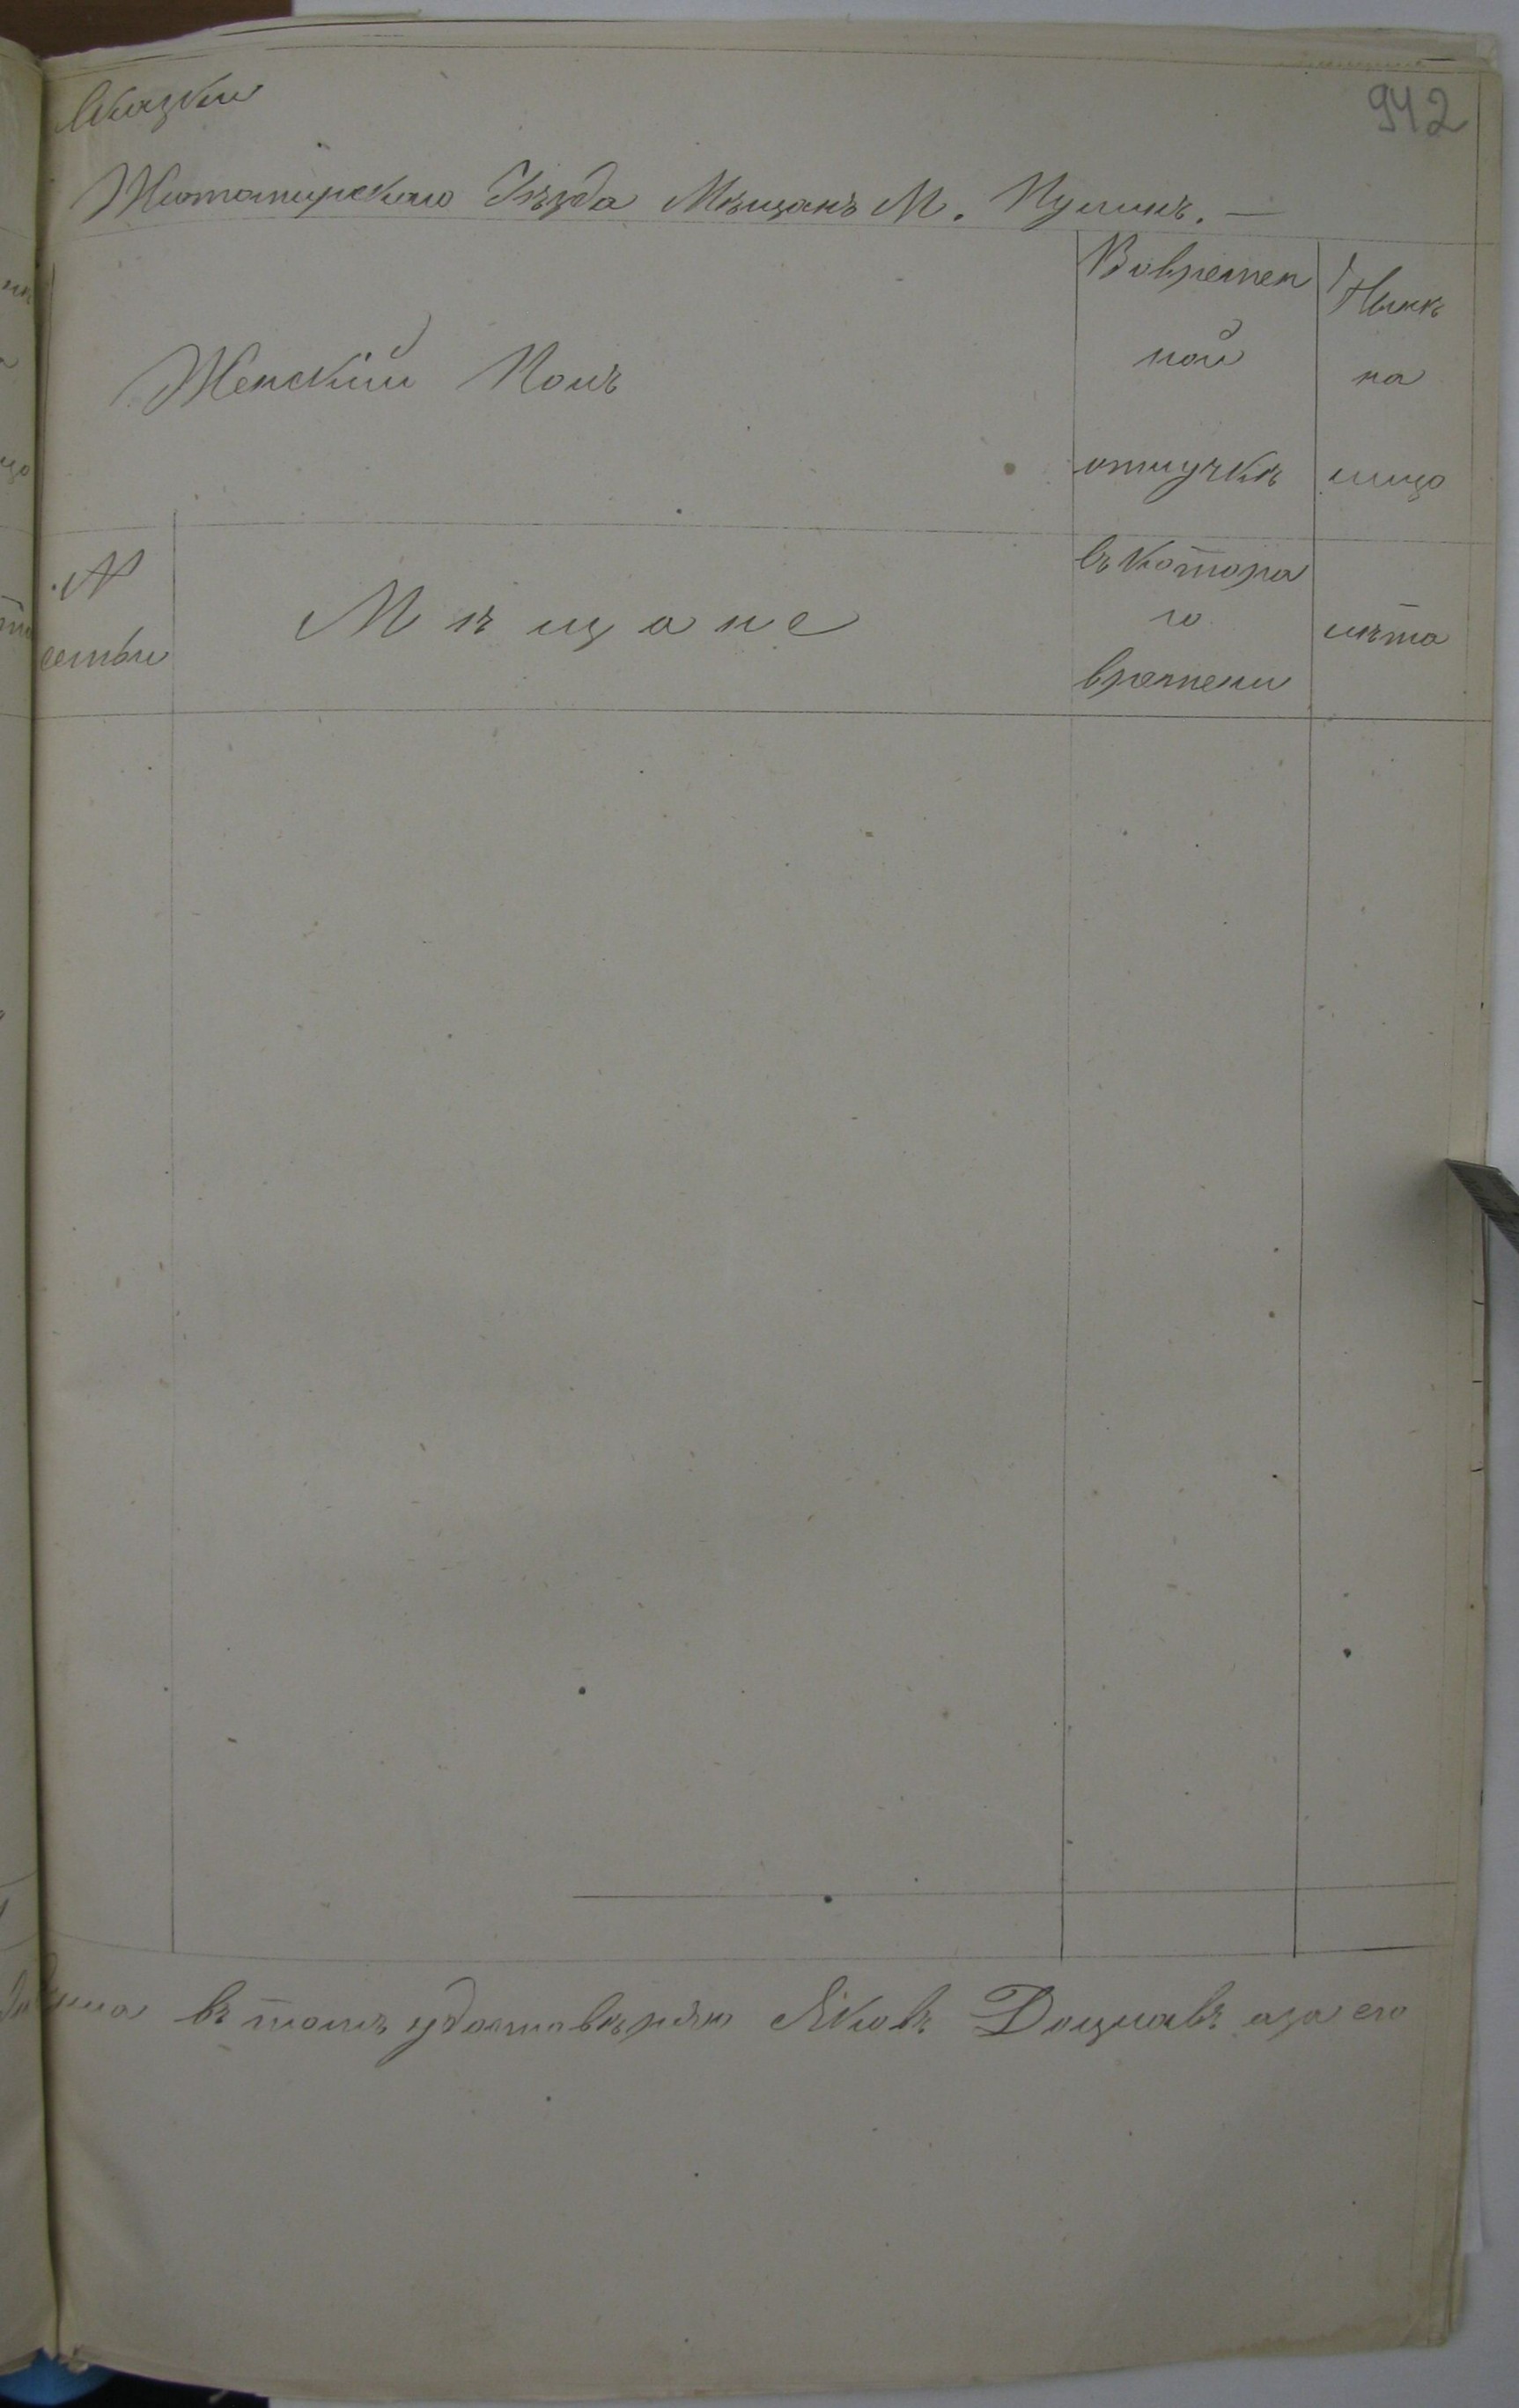 942
Сказки
Житомирскаго Уѣзда Мѣщанъ М. Пулинъ. —
Женскій Полъ
Вовремен
ной
отлучкѣ
Нынѣ
на
лицо
№
семьи
Мѣщане
въ котора
го
времени
лѣта
въ томъ удостовѣряю Яковъ аза его